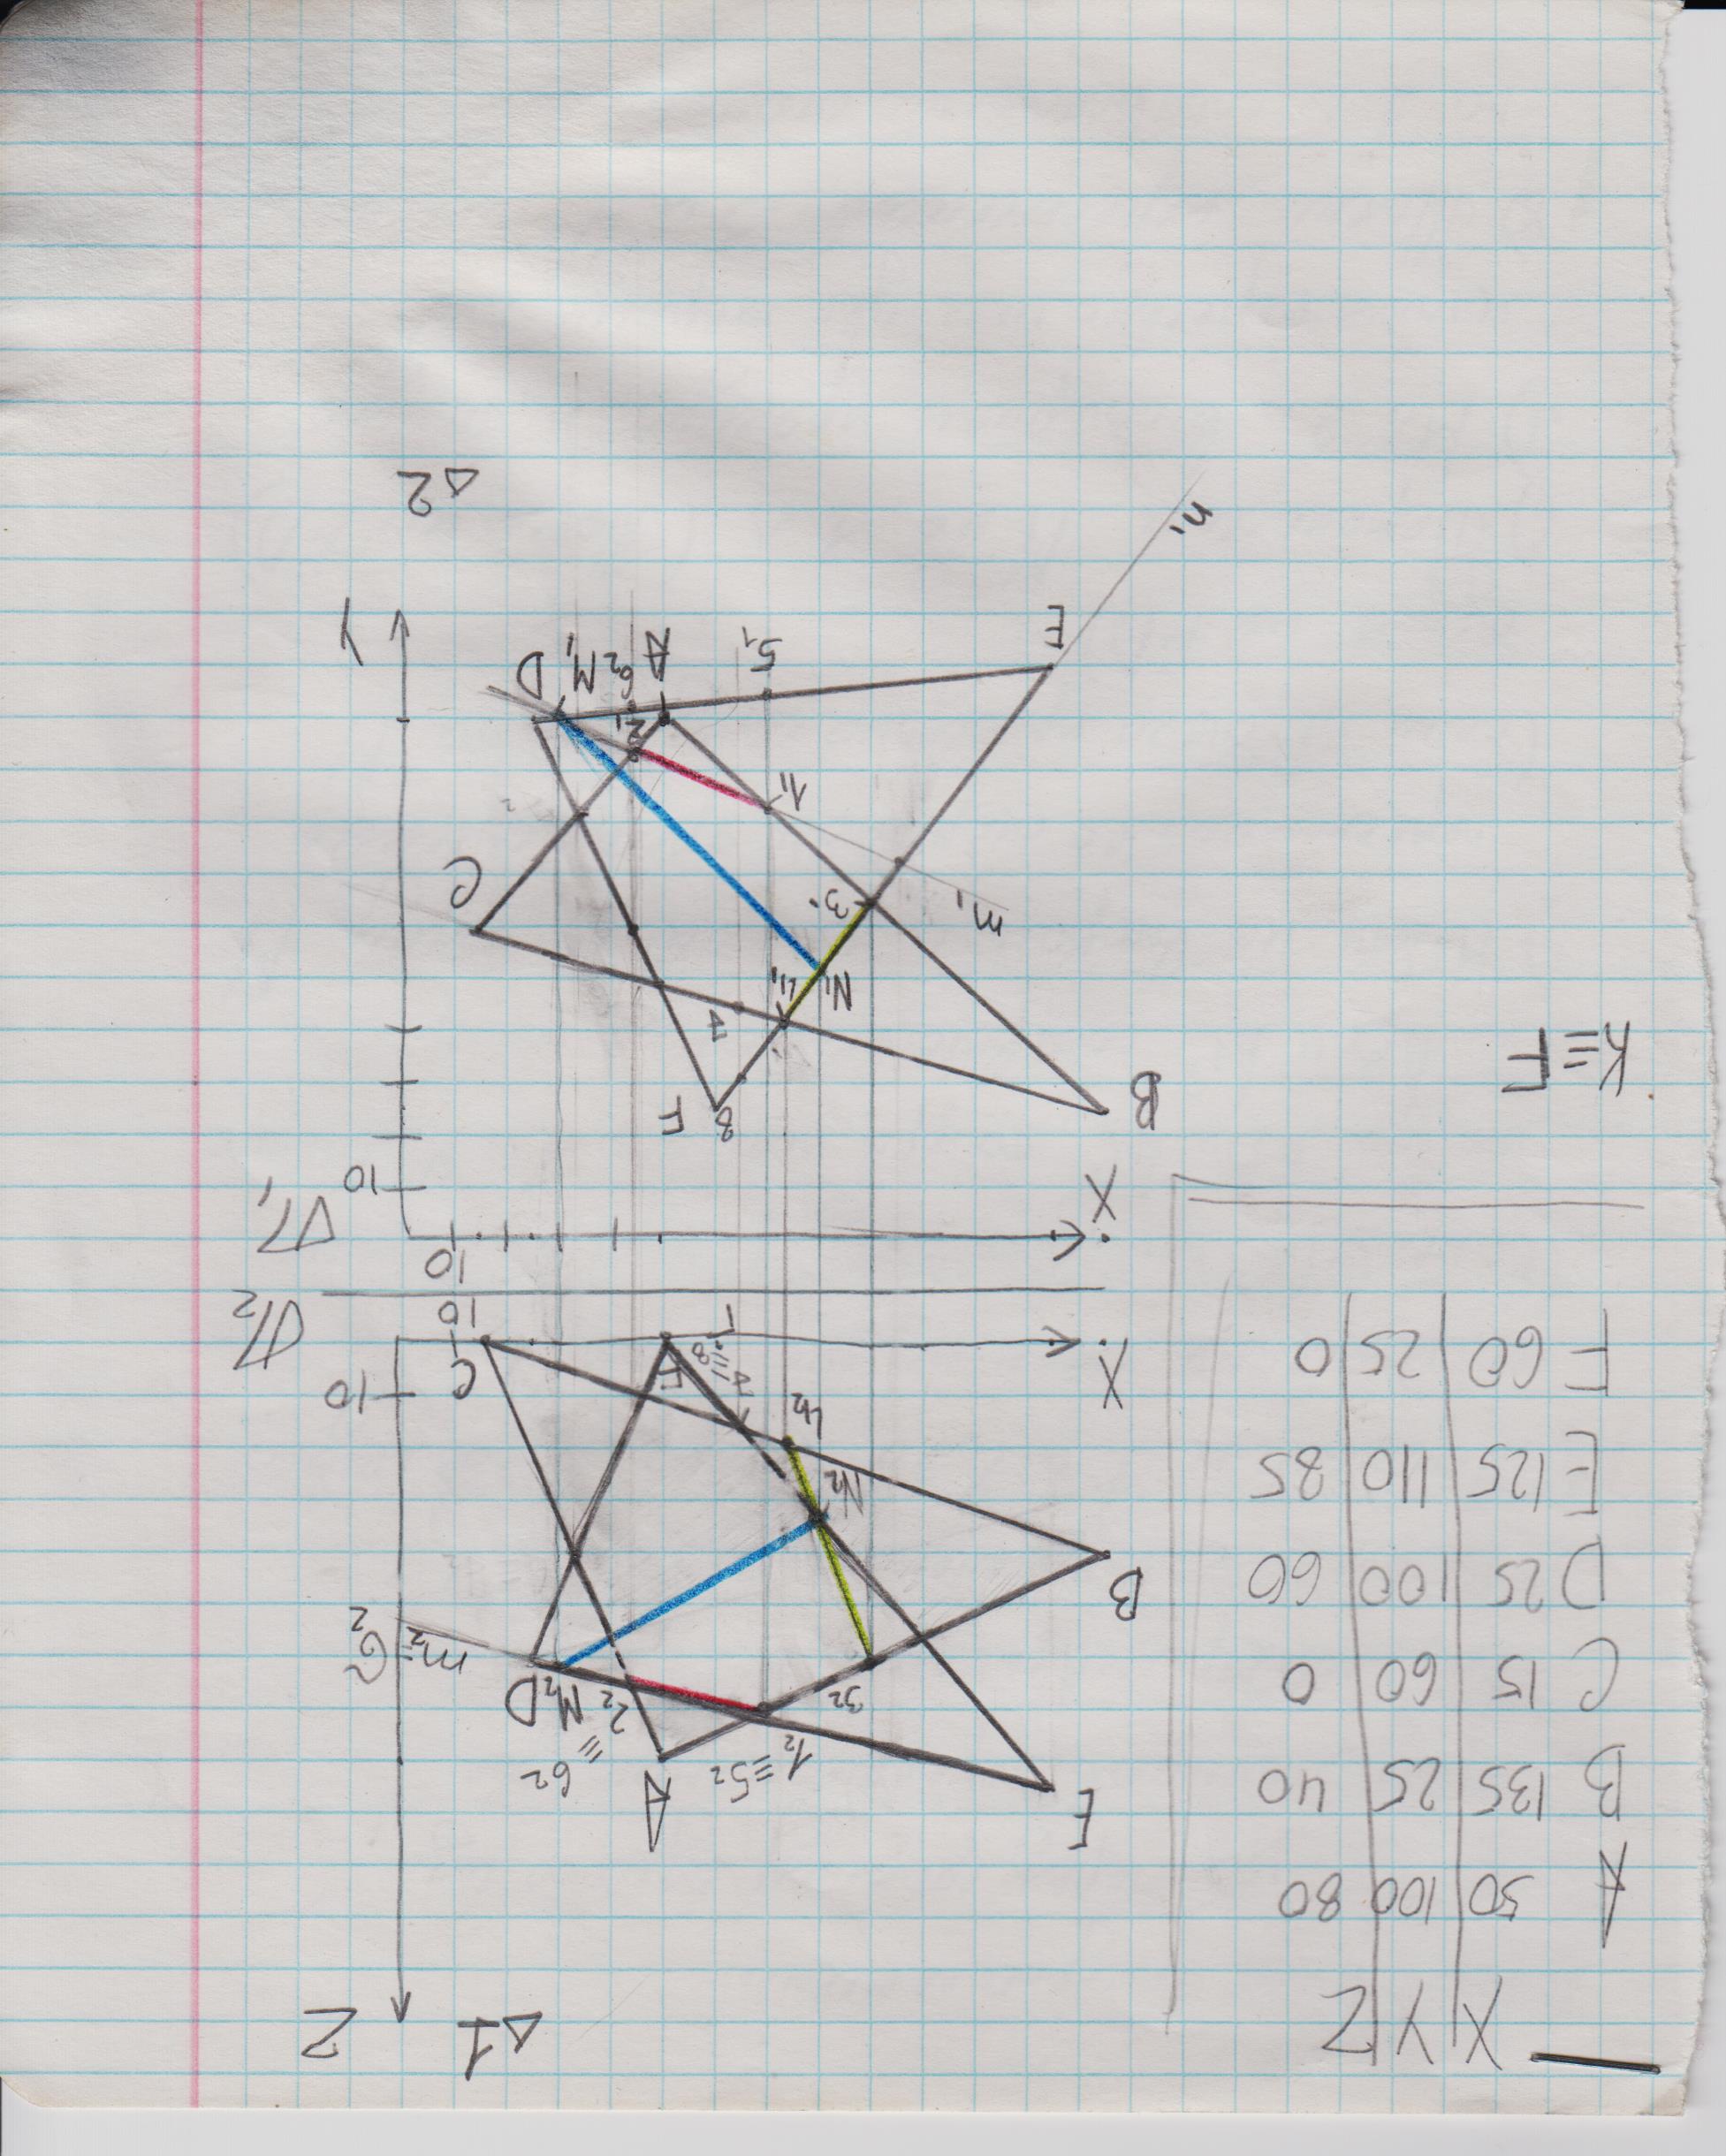 X Y Z
A 50 100 80
B 135 25 40
C 15 60 0
D 25 100 60
E 125 110 85
F 60 25 0
K≡F
Δ1 Z
E
A
1₂≡5₂
2₂≡6₂
3₂
M₂ D
m₂≡σ₂
B
N₂
4₂
7≡8
F
C
10
X
10
π₂
10
X
π₁
10
B
8 F
7
N₁ 4₁
m₁
3₁
C
1₁
2₁
E
5₁
A 6₂ M₁ D
Y
n₁
Δ2